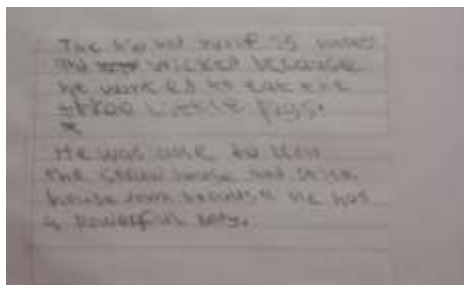 The big bad wolf is
and wicked because
he wanted to eat the
three little pigs.
He was able to blow
the straw house and stick
house down because he has
a powerful body.